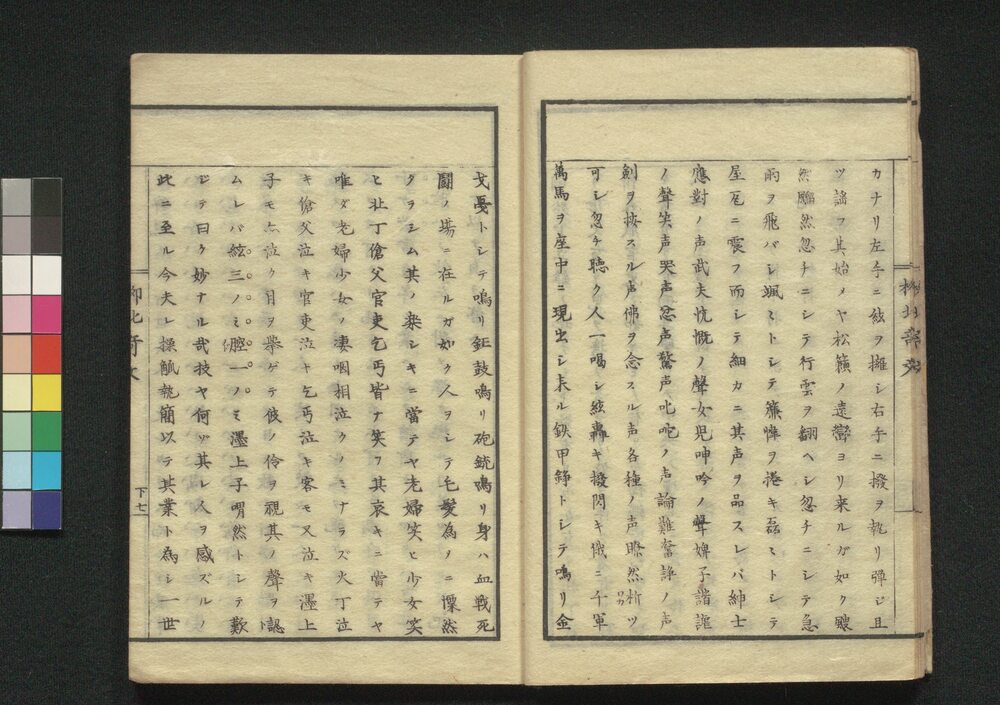 カナリ左手ニ絃ヲ擁シ右手ニ撥ヲ執リ弾ジ且
ツ謡フ其始メヤ松籟ノ遠巒ヨリ来ルガ如ク
然飄然忽チニシテ行雲ヲ翻ヘシ忽チニシテ急
雨ヲ飛バシ颯ミトシテ簾幃ヲ捲キ磊ミトシテ
屋瓦ニ震フ而シテ細カニ其声ヲ品スレバ紳士
應對ノ声武夫忼慨ノ聲女児呻吟ノ聲婢子諧謔
ノ聲笑声哭声忿声驚声叱咤ノ声論難奮諍ノ声
剣ヲ按スル声佛ヲ念スル声各種ノ声瞭然析ツ
可シ忽チ聴ク人一喝シ絃轟キ撥閃キ俄ニ千軍
萬馬ヲ座中ニ現出シ来ル鉄甲錚トシテ鳴リ金
戈戛トシテ鳴リ鉦鼓鳴リ砲銃鳴リ身ハ血戦死
闘ノ場ニ在ルガ如ク人ヲシテ毛髪為メニ慄然
タラシム其ノ楽シキニ當テヤ老婦笑ヒ少女笑
ヒ壮丁傖父官吏乞丐皆ナ笑フ其哀キニ當テヤ
唯ダ老婦少女ノ凄咽相泣クノミナラズ火丁泣
キ傖父泣キ官吏泣キ乞丐泣キ客モ又泣キ墨上
子モ亦泣ク目ヲ挙ゲテ彼ノ伶ヲ視其ノ聲ヲ認
ムレバ絃三ノミ腔一ノミ墨上子喟然トシテ歎
ジテ曰ク妙ナル哉技ヤ何ゾ其レ人ヲ感ズルノ
此ニ至ル今夫レ操觚執簡以テ其業ト為シ一世
下七